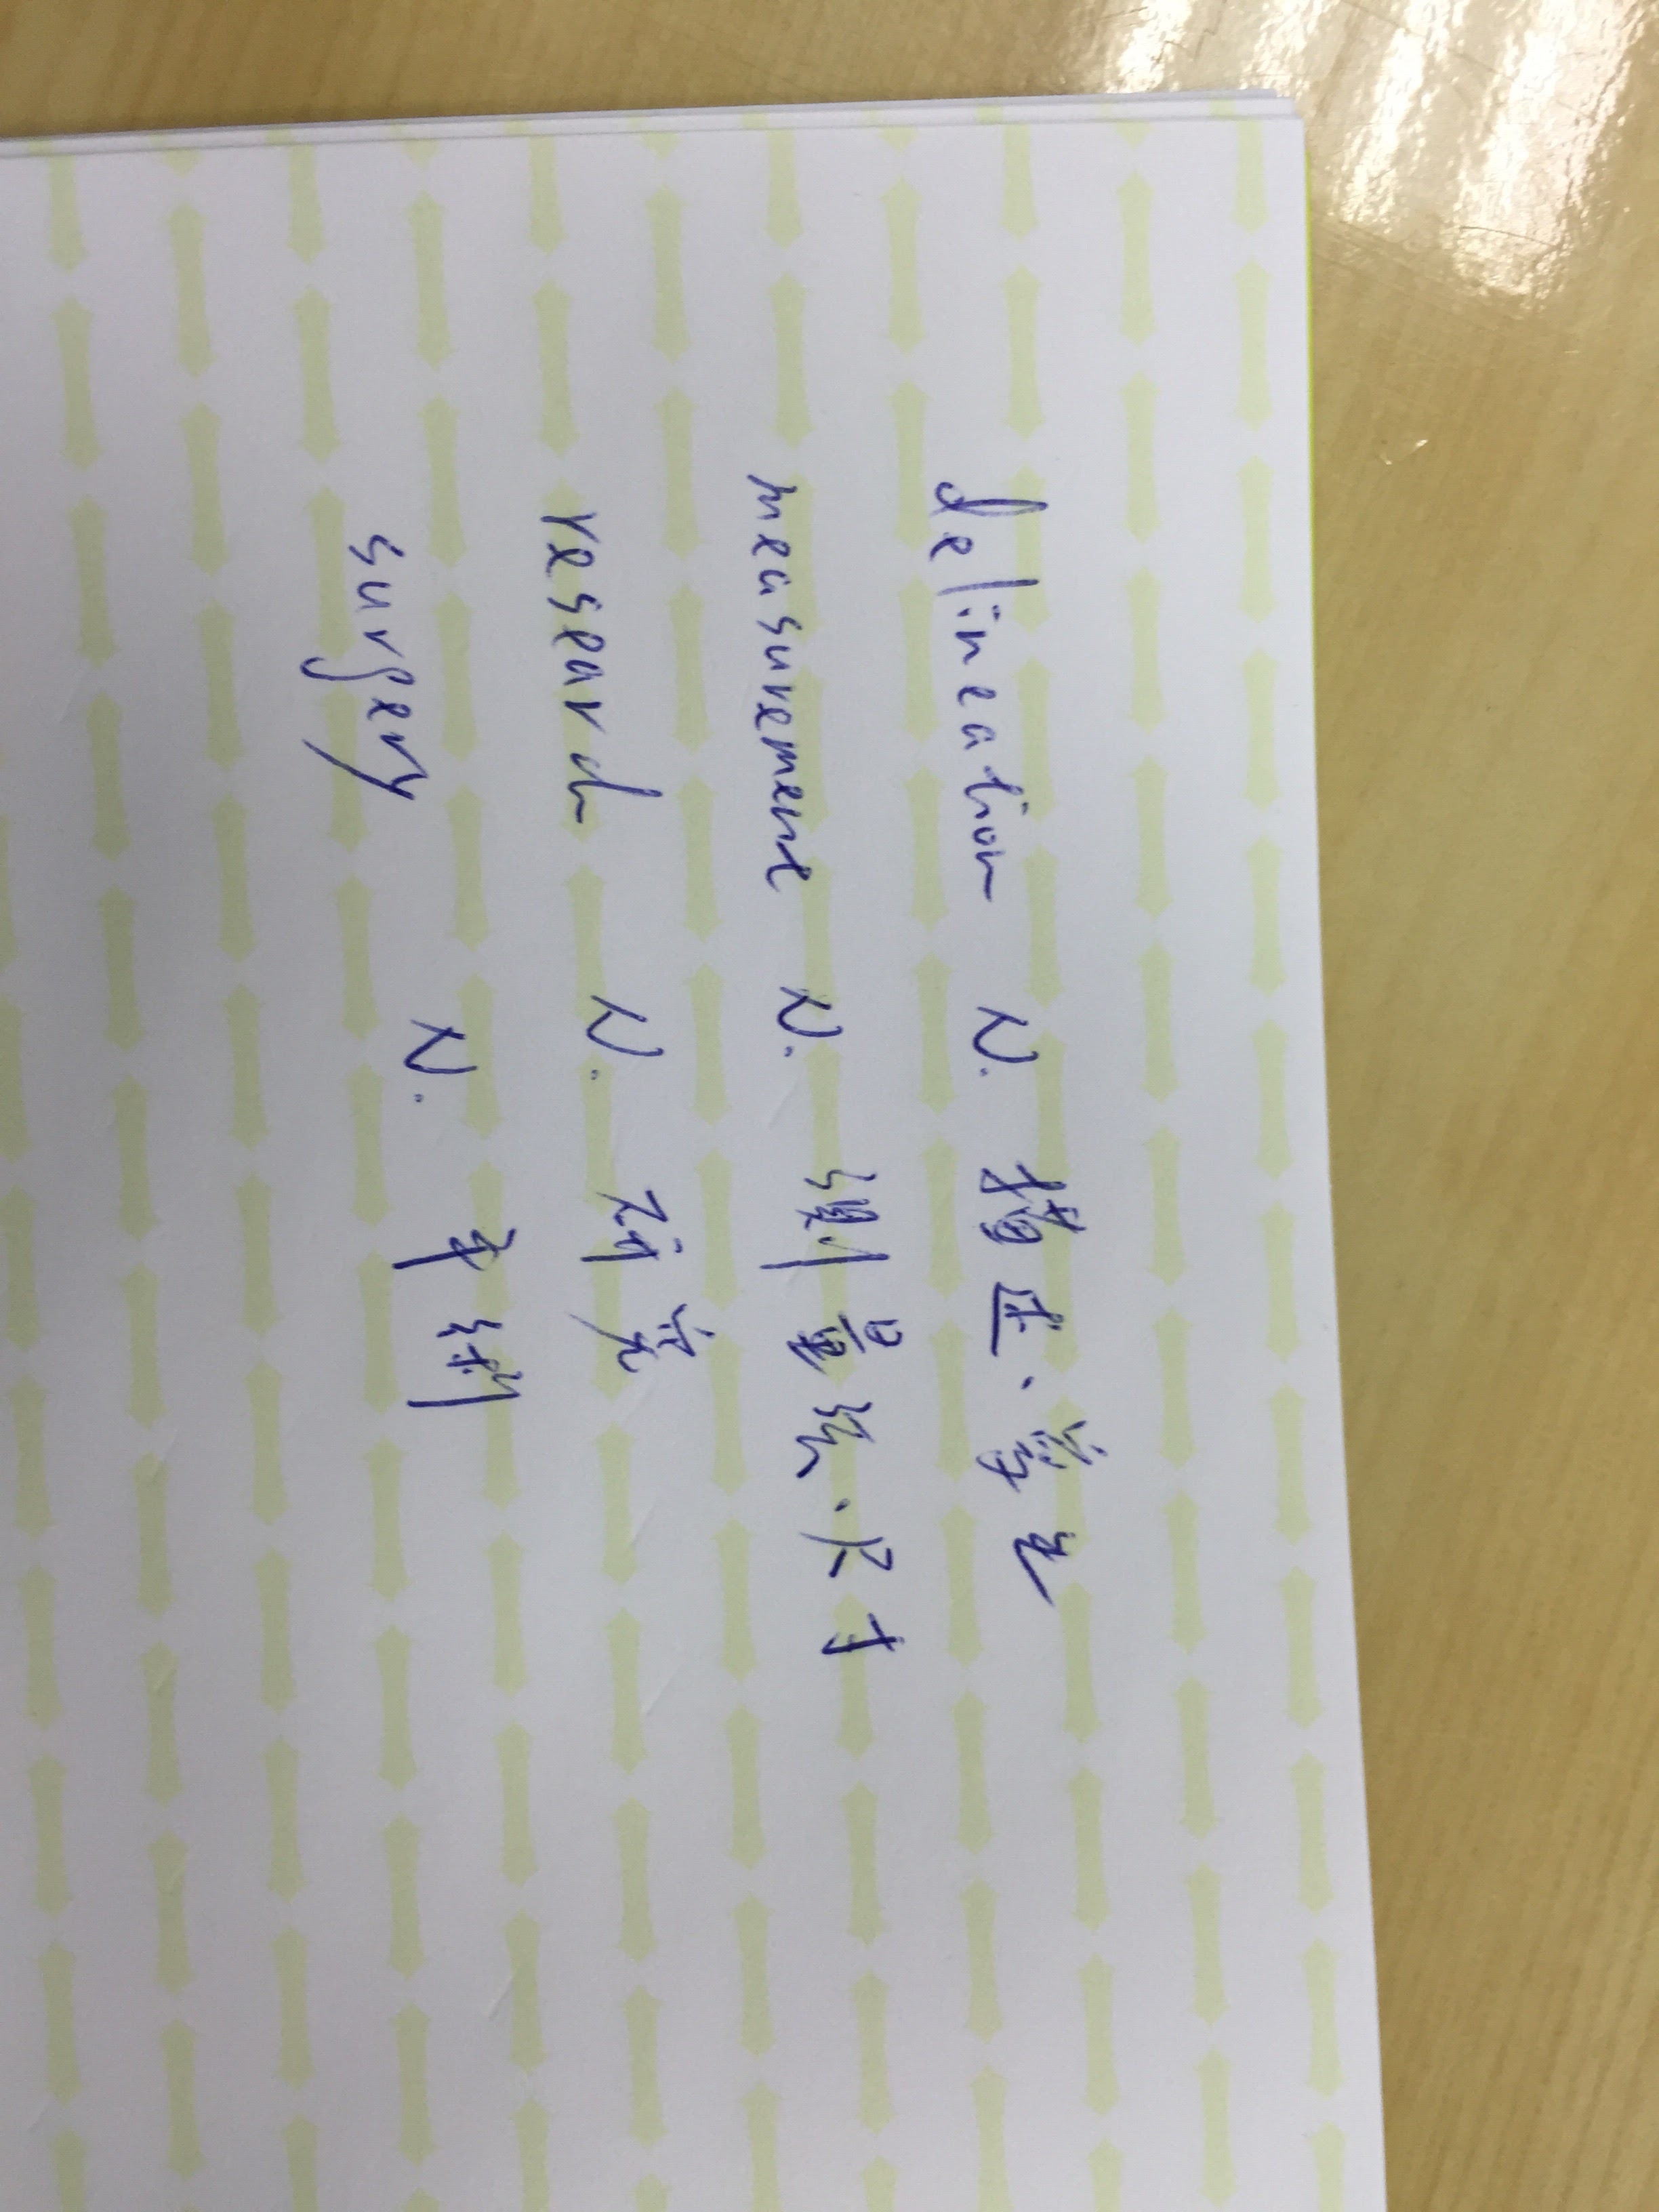 delineation N. 描述、
measurement N. 測量法、尺寸
research N. 研究
surgery N. 手術